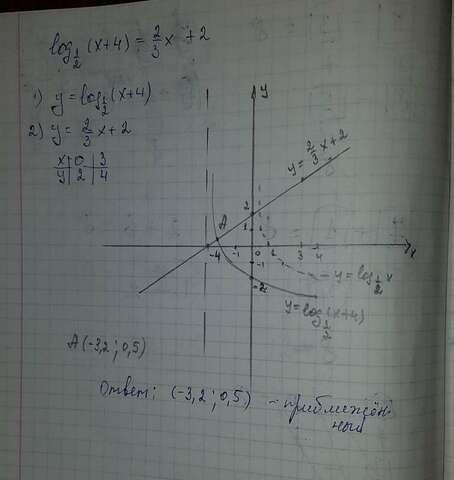 log 1/2 (x+4) = 2/3 x + 2
1) y = log 1/2 (x+4)
2) y = 2/3 x + 2
x | 0 | 3
y | 2 | 4
y
y = 2/3 x + 2
2
A
1
-4 -1 0 1 3 4 x
-1
-2
y = log 1/2 x
y = log 1/2 (x+4)
A (-3,2 ; 0,5)
Ответ: (-3,2 ; 0,5) - приближён-
ный